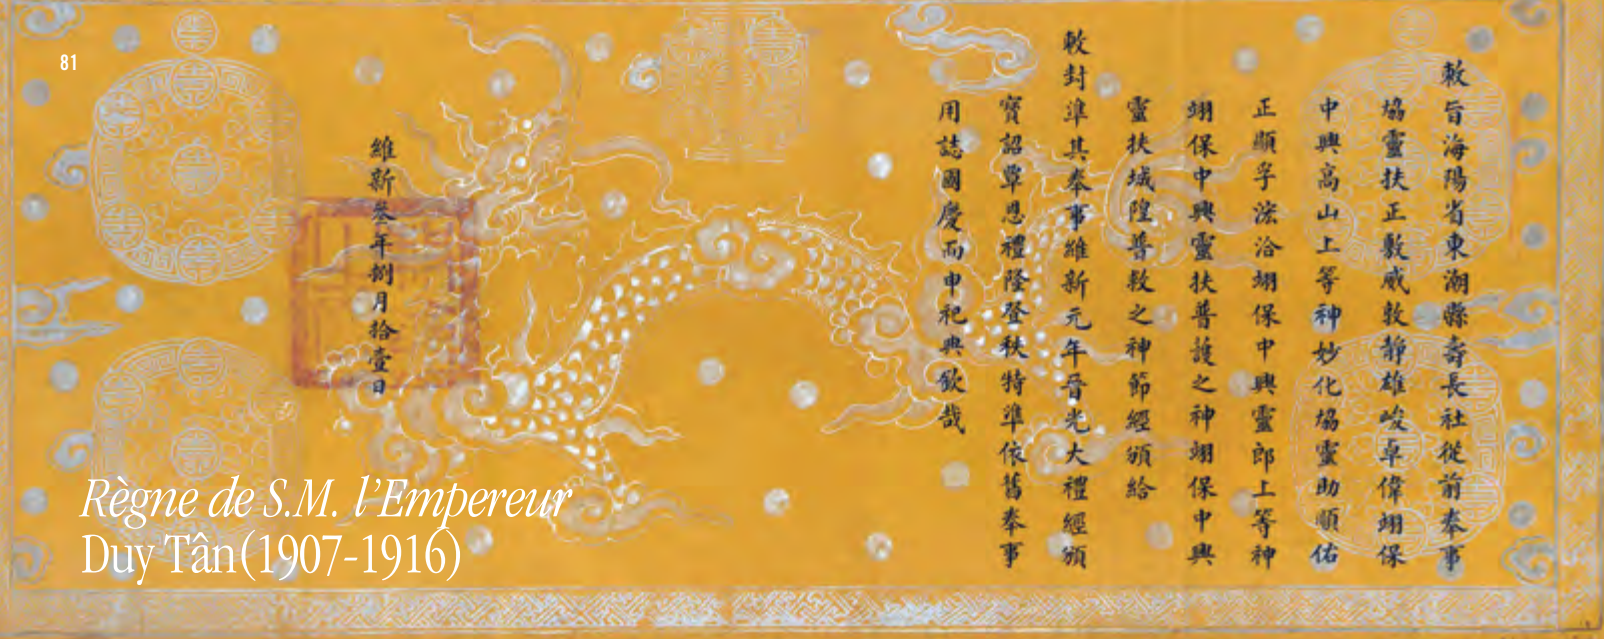 81
敕旨海陽省東潮縣壽長社從前奉事
協靈扶正敷威敦靜雄峻卓偉翊保
中興高山上等神妙化協靈助順佑
正顯孚浤洽翊保中興靈郎上等神
翊保中興靈扶普護之神翊保中興
靈扶城隍普救之神節經頒給
敕封準其奉事維新元年晉光大禮經頒
寶詔覃恩禮隆登秩特準依舊奉事
用誌國慶而申祀典欽哉
維新叄年捌月拾壹日
Règne de S.M. l’Empereur
Duy Tân (1907-1916)